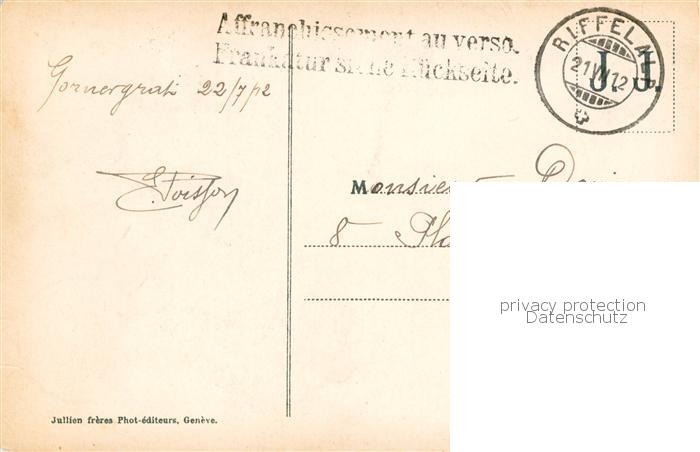 Affranchissement au verso.
Frankatur siehe Rückseite.
RIFFELALP
21 VII 12
J. J.
Gornergrat 22/7/12
Poisson
Monsieur
8
privacy protection
Datenschutz
Jullien frères Phot-éditeurs, Genève.